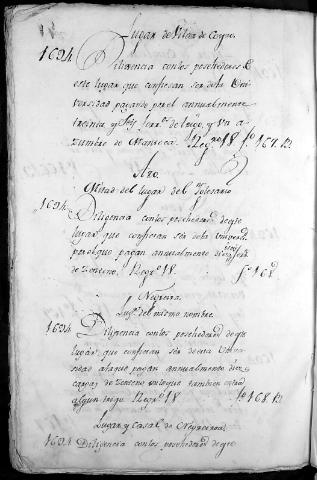 Lugar de Vilar de
1694 Diligencia con los poschedores de
este lugar que confiesan ser de la Vni
versidad pagando por el annualmente
treinta y seis ferr.s de trigo, y Vn a
zumbre de Manteca. Reg.ro 18 f.o 167. B.
Mitad del lugar del
1694. Diligencia con los poschedores de este
lugar que confiesan ser de la Vniversid.
por el que pagan annualmente
de Zenteno. Reg.ro 18. f.o 168
Neyreira
Lug.r del mismo nombre.
1694 Diligencia con los poschedores de este
lugar, que confiesan ser de esta Univer
sidad a la que pagan annualmente diez
cargas de Zenteno, aunque tambien
algun trigo Reg.ro 18 f.o 168. B.
Lugar y Casal de Neyreiroa
1694 Diligencia con los poschedores de este